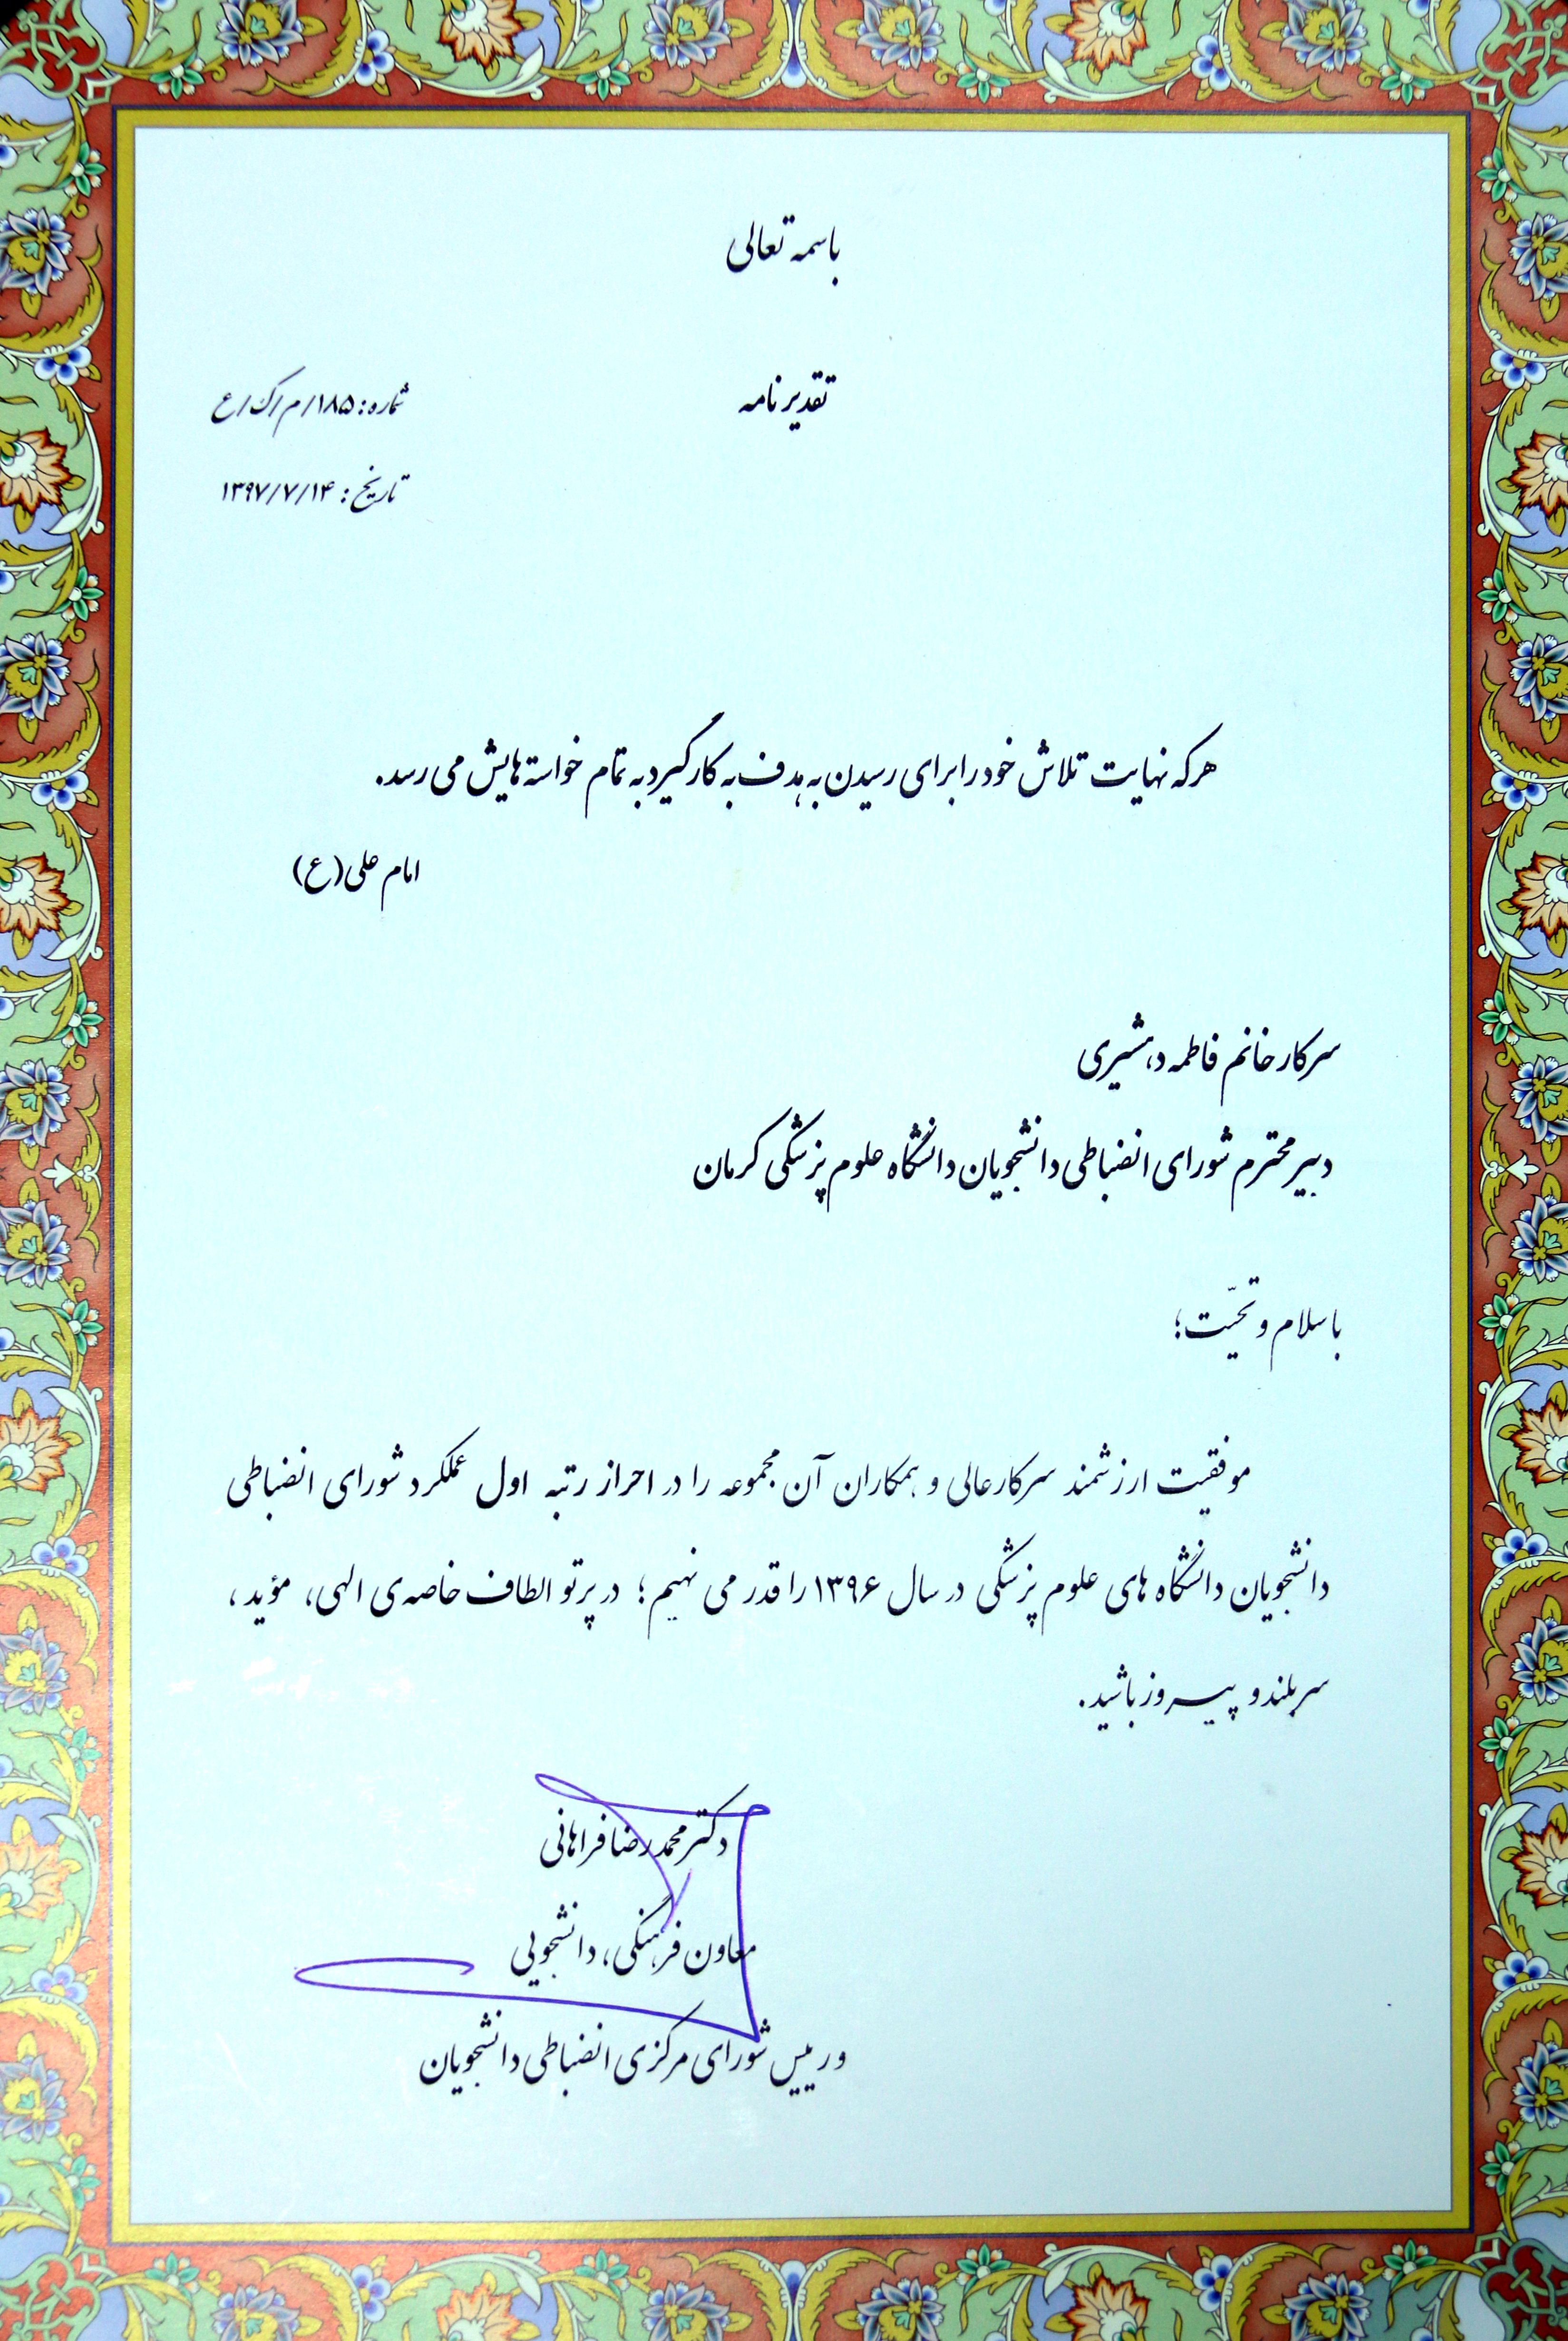 باسمه تعالی
تقدیرنامه
شماره: ۱۸۵/م/ک/ع
تاریخ: ۱۳۹۷/۷/۱۴
هرکه نهایت تلاش خود را برای رسیدن به هدف به کار گیرد به تمام خواسته هایش می رسد.
امام علی(ع)
سرکار خانم فاطمه دهشیری
دبیر محترم شورای انضباطی دانشجویان دانشگاه علوم پزشکی کرمان
با سلام و تحیّت؛
موفقیت ارزشمند سرکارعالی و همکاران آن مجموعه را در احراز رتبه اول عملکرد شورای انضباطی
دانشجویان دانشگاه های علوم پزشکی در سال ۱۳۹۶ را قدر می نهیم؛ در پرتو الطاف خاصه ی الهی، مؤید،
سربلند و پیروز باشید.
دکتر محمدرضا فراهانی
معاون فرهنگی، دانشجویی
و رییس شورای مرکزی انضباطی دانشجویان